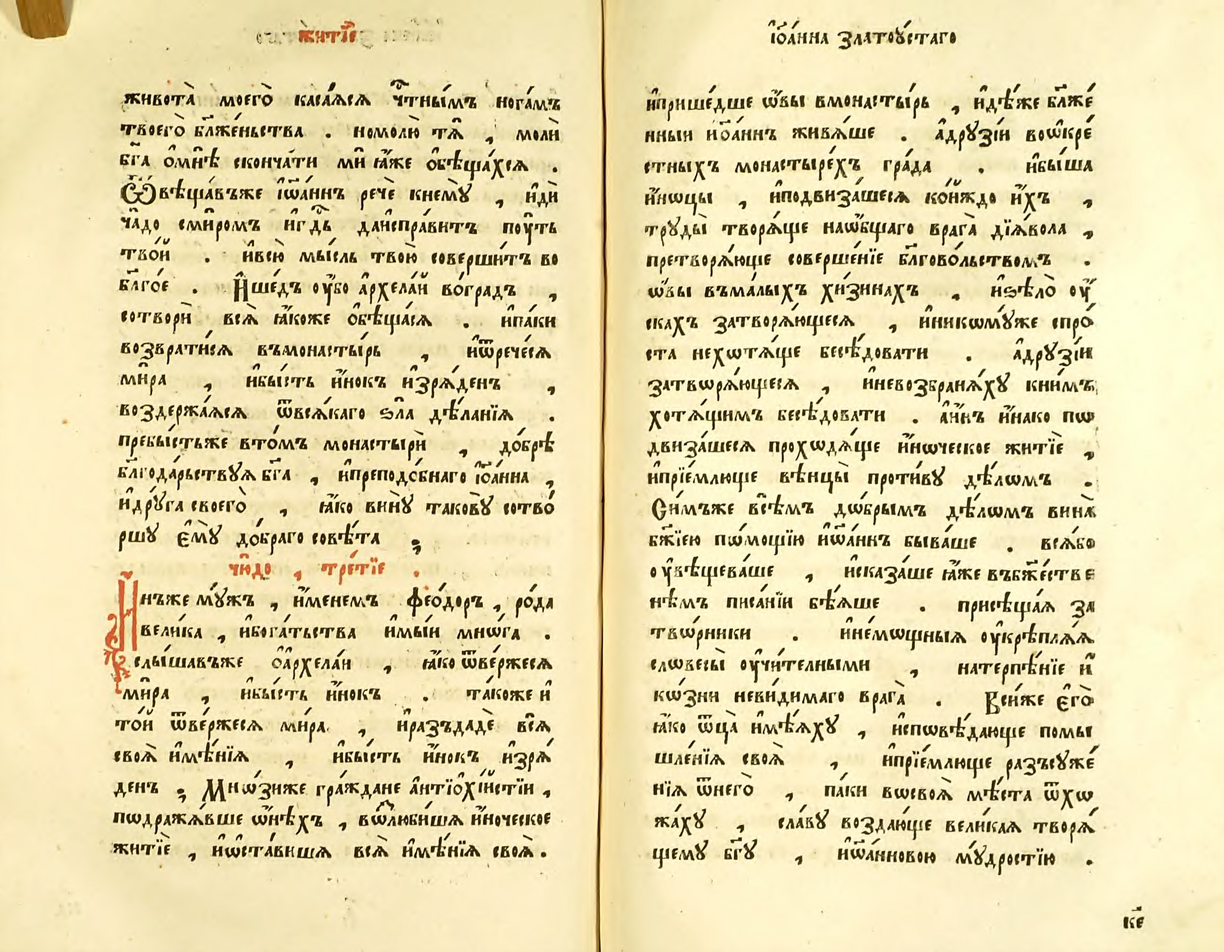 житїе
живота̀ моего̀ каса́ѧсѧ чⷭ҇тны́мъ нога́мъ
твоего̀ бл҃же́ньства . но молю̀ тѧ̀ , моли̂
бг҃а ѡ҆ мнѣ̀ сконча́ти ми ꙗ҆́же ѻ҆бѣща́хсѧ .
Ѿвѣща́въже і҆ѡа́ннъ рече̂ к немꙋ̀ , и҆ди̂
ча́до сми́ромъ и҆ гдⷭ҇ь да и҆спра́витъ пꙋ́ть
тво́й . и҆ всю̀ мы́сль твою̀ соверши́тъ во
бл҃го́е . И҆ ше́дъ ᲂу҆́бо а҆рхела́й во гра́дъ ,
сотворѝ всѧ̀ ꙗ҆́коже ѻ҆бѣща́сѧ . и҆ па́ки
возврати́сѧ въ монасты́рь , и҆ ѿрече́сѧ
ми́ра , и҆ бы́сть и҆́нокъ и҆зрѧ́денъ ,
воздержа́ѧсѧ ѿ всѧ́каго ѕла̀ дѣ́ланїѧ .
пребы́стьже в то́мъ монастырѝ , до́брѣ
бл҃года́рьствꙋѧ бг҃а , и҆ преподо́бнаго і҆ѻа́нна ,
и҆ дрꙋ́га своего̀ , ꙗ҆́ко винꙋ̀ такову̀ сотво́
ршꙋ є҆мꙋ̀ до́браго совѣ́та ;
чю́до , тре́тїе .
И҆́нъже мꙋ́жъ , и҆́менемъ ѳео́доръ , ро́да
вели́ка , и҆ бога́тьства и҆мы́и мнѡ́га .
слы́шавъже ѻ҆ а҆рхела́и , ꙗ҆́ко ѿве́ржесѧ
ми́ра , и҆ бы́сть и҆́нокъ . та́коже и҆
то́й ѿве́ржесѧ ми́ра , и҆ разъдадѐ всѧ̀
своѧ̀ и҆мѣ́нїѧ , и҆ бы́сть и҆́нокъ и҆зрѧ́
денъ ; Мно́ѕиже гра́ждане а҆нтїѻхі́йстїи ,
пѡдража́вше ѡ҆́нѣхъ , вѡзлюби́шѧ и҆́ноческое
житїѐ , и҆ ѡ҆ста́вишѧ всѧ̀ и҆мѣ́нїѧ своѧ̀ .
і҆ѻа́нна златоꙋ́стаго
и҆ прише́дше ѡ҆́вы в монасты́рь , и҆дѣ́же бл҃же́
нныи и҆ѻа́ннъ живѧ́ше . а҆ дрꙋзі́и во ѡ҆кре́
стныхъ монастыре́хъ гра́да . и҆ бы́ша
и҆́ноцы , и҆ подвиза́шесѧ ко́йждо и҆́хъ ,
трꙋды̀ творѧ́ще на ѡ҆́бщаго врага̀ дїѧ́вола ,
претворѧ́юще соверше́нїе бл҃гово́льствомъ .
ѡ҆́вы въ ма́лыхъ хи́зинахъ , и҆ ѕѣлѻ̀ ᲂу҆́
скахъ затворѧ́ющесѧ , и҆ никѡмꙋ́же спро́
ста нехотѧ́ще бесѣ́довати . а҆ дрꙋзі́и
затвѡрѧ́ющесѧ , и҆ невозбранѧ́хꙋ к ни́мъ
хотѧ́щимъ бесѣ́довати . а҆ и҆́нъ и҆́нако пѡ
двиза́шесѧ прохѡдѧ́ще и҆́нѡческое житїѐ ,
и҆ прїе́млюще вѣнцы̀ проти́вꙋ дѣ́лѡмъ .
Си́мъже всѣ́мъ дѡ́брымъ дѣ́лѡмъ вина̀
бж҃їею пѡ́мощїю и҆ѡа́ннъ быва́ше . всѧ́бо
ᲂу҆вѣщева́ше , и҆ сказа́ше ꙗ҆́же въ бж҃е́стве
нѣмъ писа́нїи бѣ́ѧше . присѣща́ѧ за
твѡ́рники . и҆ не́мѡщныѧ ᲂу҆крѣплѧ́ѧ
словесы̀ ᲂу҆чи́телными , на терпѣ́нїе и҆
кѡ́зни неви́димаго врага̀ . Всѝже є҆го̀
ꙗ҆́ко ѿц҃а̀ и҆мѣ́ѧхꙋ , и҆сповѣ́дающе помы
шле́нїѧ своѧ̀ , и҆ прїе́млюще разъсꙋжѐ
нїѧ ѿ него̀ , па́ки вѡ своѧ̀ мѣ́ста ѿхѡ
жа́хꙋ , сла́вꙋ воздаю́ще вели́каѧ творѧ́
щемꙋ бг҃ꙋ , и҆ѡа́нновою мꙋ́дростїю .
ке҃